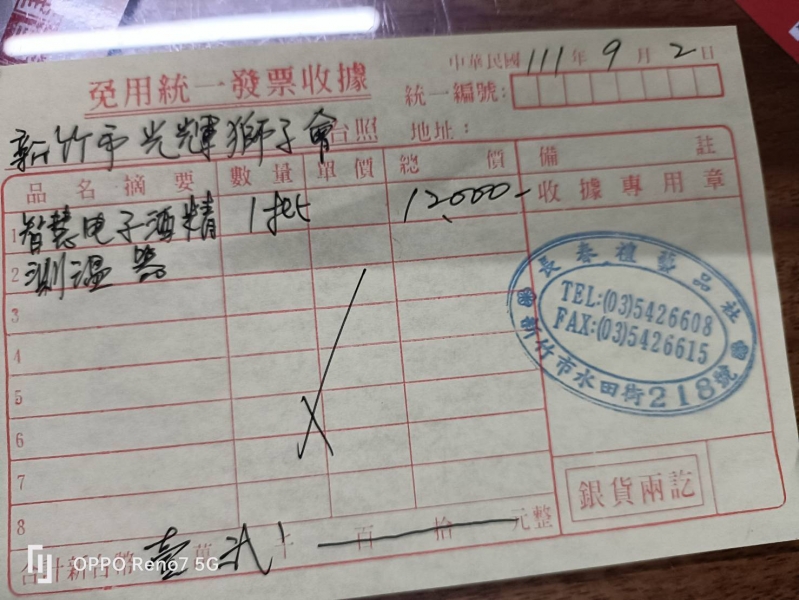 中華民國 111 年 9 月 2 日
免用統一發票收據
統一編號:
新竹市光輝獅子會 台照 地址:
品名摘要 數量 單價 總價 備註
收據專用章
1 智慧电子酒精 1批 12,000-
2 測温器
3
4
5
6
7
8
長春禮藝品社
TEL:(03)5426608
FAX:(03)5426615
新竹市水田街218號
銀貨兩訖
合計新台幣 壹 萬 弍 仟 百 拾 元整
OPPO Reno7 5G